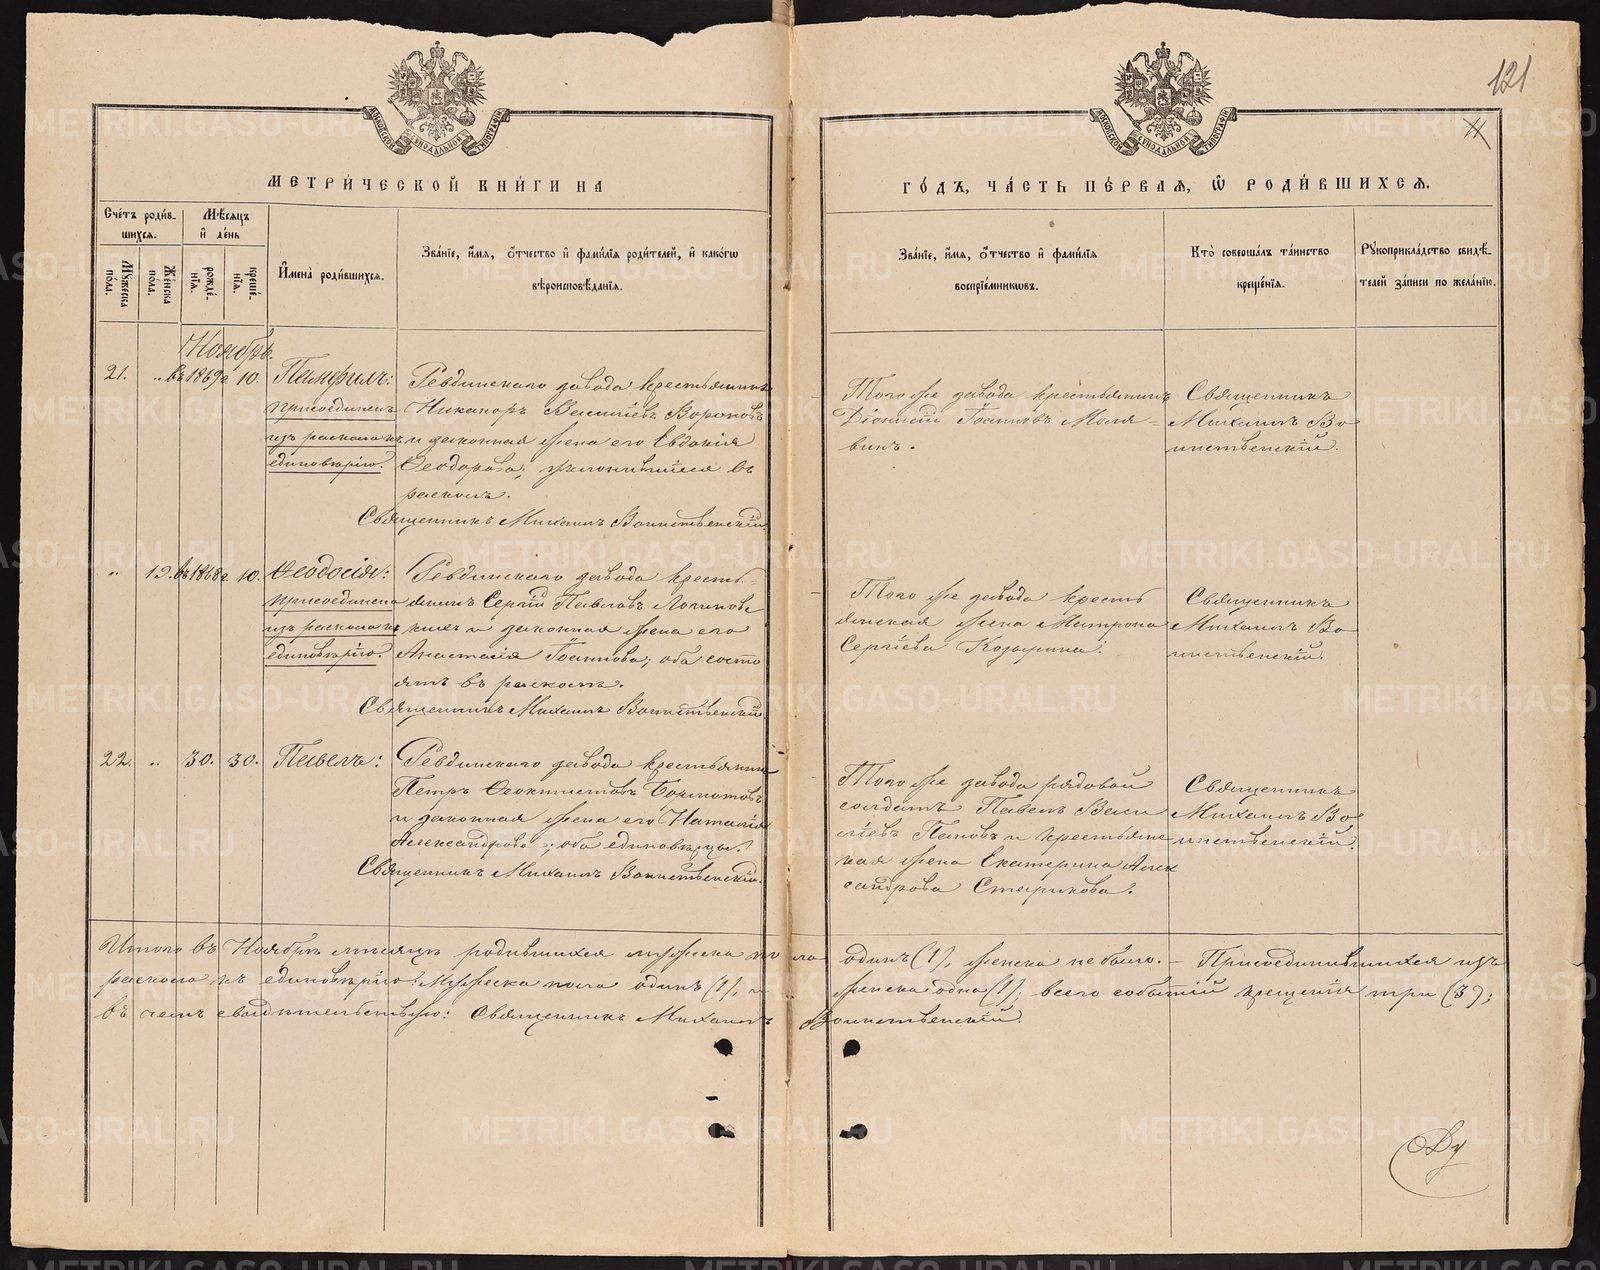 121
МЕТРИ́ЧЕСКОЙ КНИ́ГИ НА
ГО́ДЪ, ЧА́СТЬ ПЕ́РВАѦ, Ѡ҆ РОДИ́ВШИХСѦ.
Сче́тъ роди́в-
шихсѧ.
Мꙋ́жеска по́ла.
Же́нска по́ла.
Мѣ́сѧцъ
и҆ де́нь
рожде́-
нїѧ.
креще́-
нїѧ.
И҆мена̀ роди́вшихсѧ.
Зва́нїе, и҆́мѧ, ѻ҆́тчество и҆ фами́лїѧ роди́телей, и҆ какогѡ
вѣроисповѣ́данїѧ.
Зва́нїе, и҆́мѧ, ѻ҆́тчество и҆ фами́лїѧ
воспрїе́мникѡвъ.
Кто̀ соверша́лъ та́инство
креще́нїѧ.
Рꙋкоприкла́дство свидѣ́-
телей за́писи по жела́нїю.
Ноябрь.
21.
„
въ 1869 г
10.
Памфилъ:
присоединенъ
изъ раскола къ
единовѣрію.
Ревдинскаго завода крестьянинъ
Никаноръ Васильевъ Вороновъ
и законная жена его Евдокія
Ѳеодорова; уклонившіеся въ
расколъ.
Священникъ Михаилъ Воинственскій.
Того же завода крестьянинъ
Діонисій Іоанновъ Маля-
винъ.
Священникъ
Михаилъ Во
инственскій.
„
19.
въ 1868 г
10.
Ѳеодосія:
присоединена
изъ раскола къ
единовѣрію.
Ревдинскаго завода кресть-
янинъ Сергій Павловъ Логиновс
кихъ и законная жена его
Анастасія Іоаннова; оба состо
ятъ въ расколѣ.
Священникъ Михаилъ Воинственскій
Того же завода кресть
янская жена Матрона
Сергіева Козырина.
Священникъ
Михаилъ Во
инственскій.
22.
„
30.
30.
Павелъ:
Ревдинскаго завода крестьянинъ
Петръ Ѳеоктистовъ
и законная жена его Наталія
Александрова; оба единовѣрцы.
Священникъ Михаилъ Воинственскій.
Того же завода рядовой
солдатъ Павелъ Васи
ліевъ Пановъ и крестьянс
кая жена Екатерина Алек
сандрова Старикова.
Священникъ
Михаилъ Во
инственскій.
Итого въ Ноябрѣ мѣсяцѣ родившихся мужеска пола одинъ (1), женска не было. – Присоединившихся изъ
раскола къ единовѣрію: мужеска пола одинъ (1), и женска одна (1); всего событій крещенія три (3);
въ чемъ свидѣтельствую: Священникъ Михаилъ Воинственскій.
METRIKI.GASO-URAL.RU